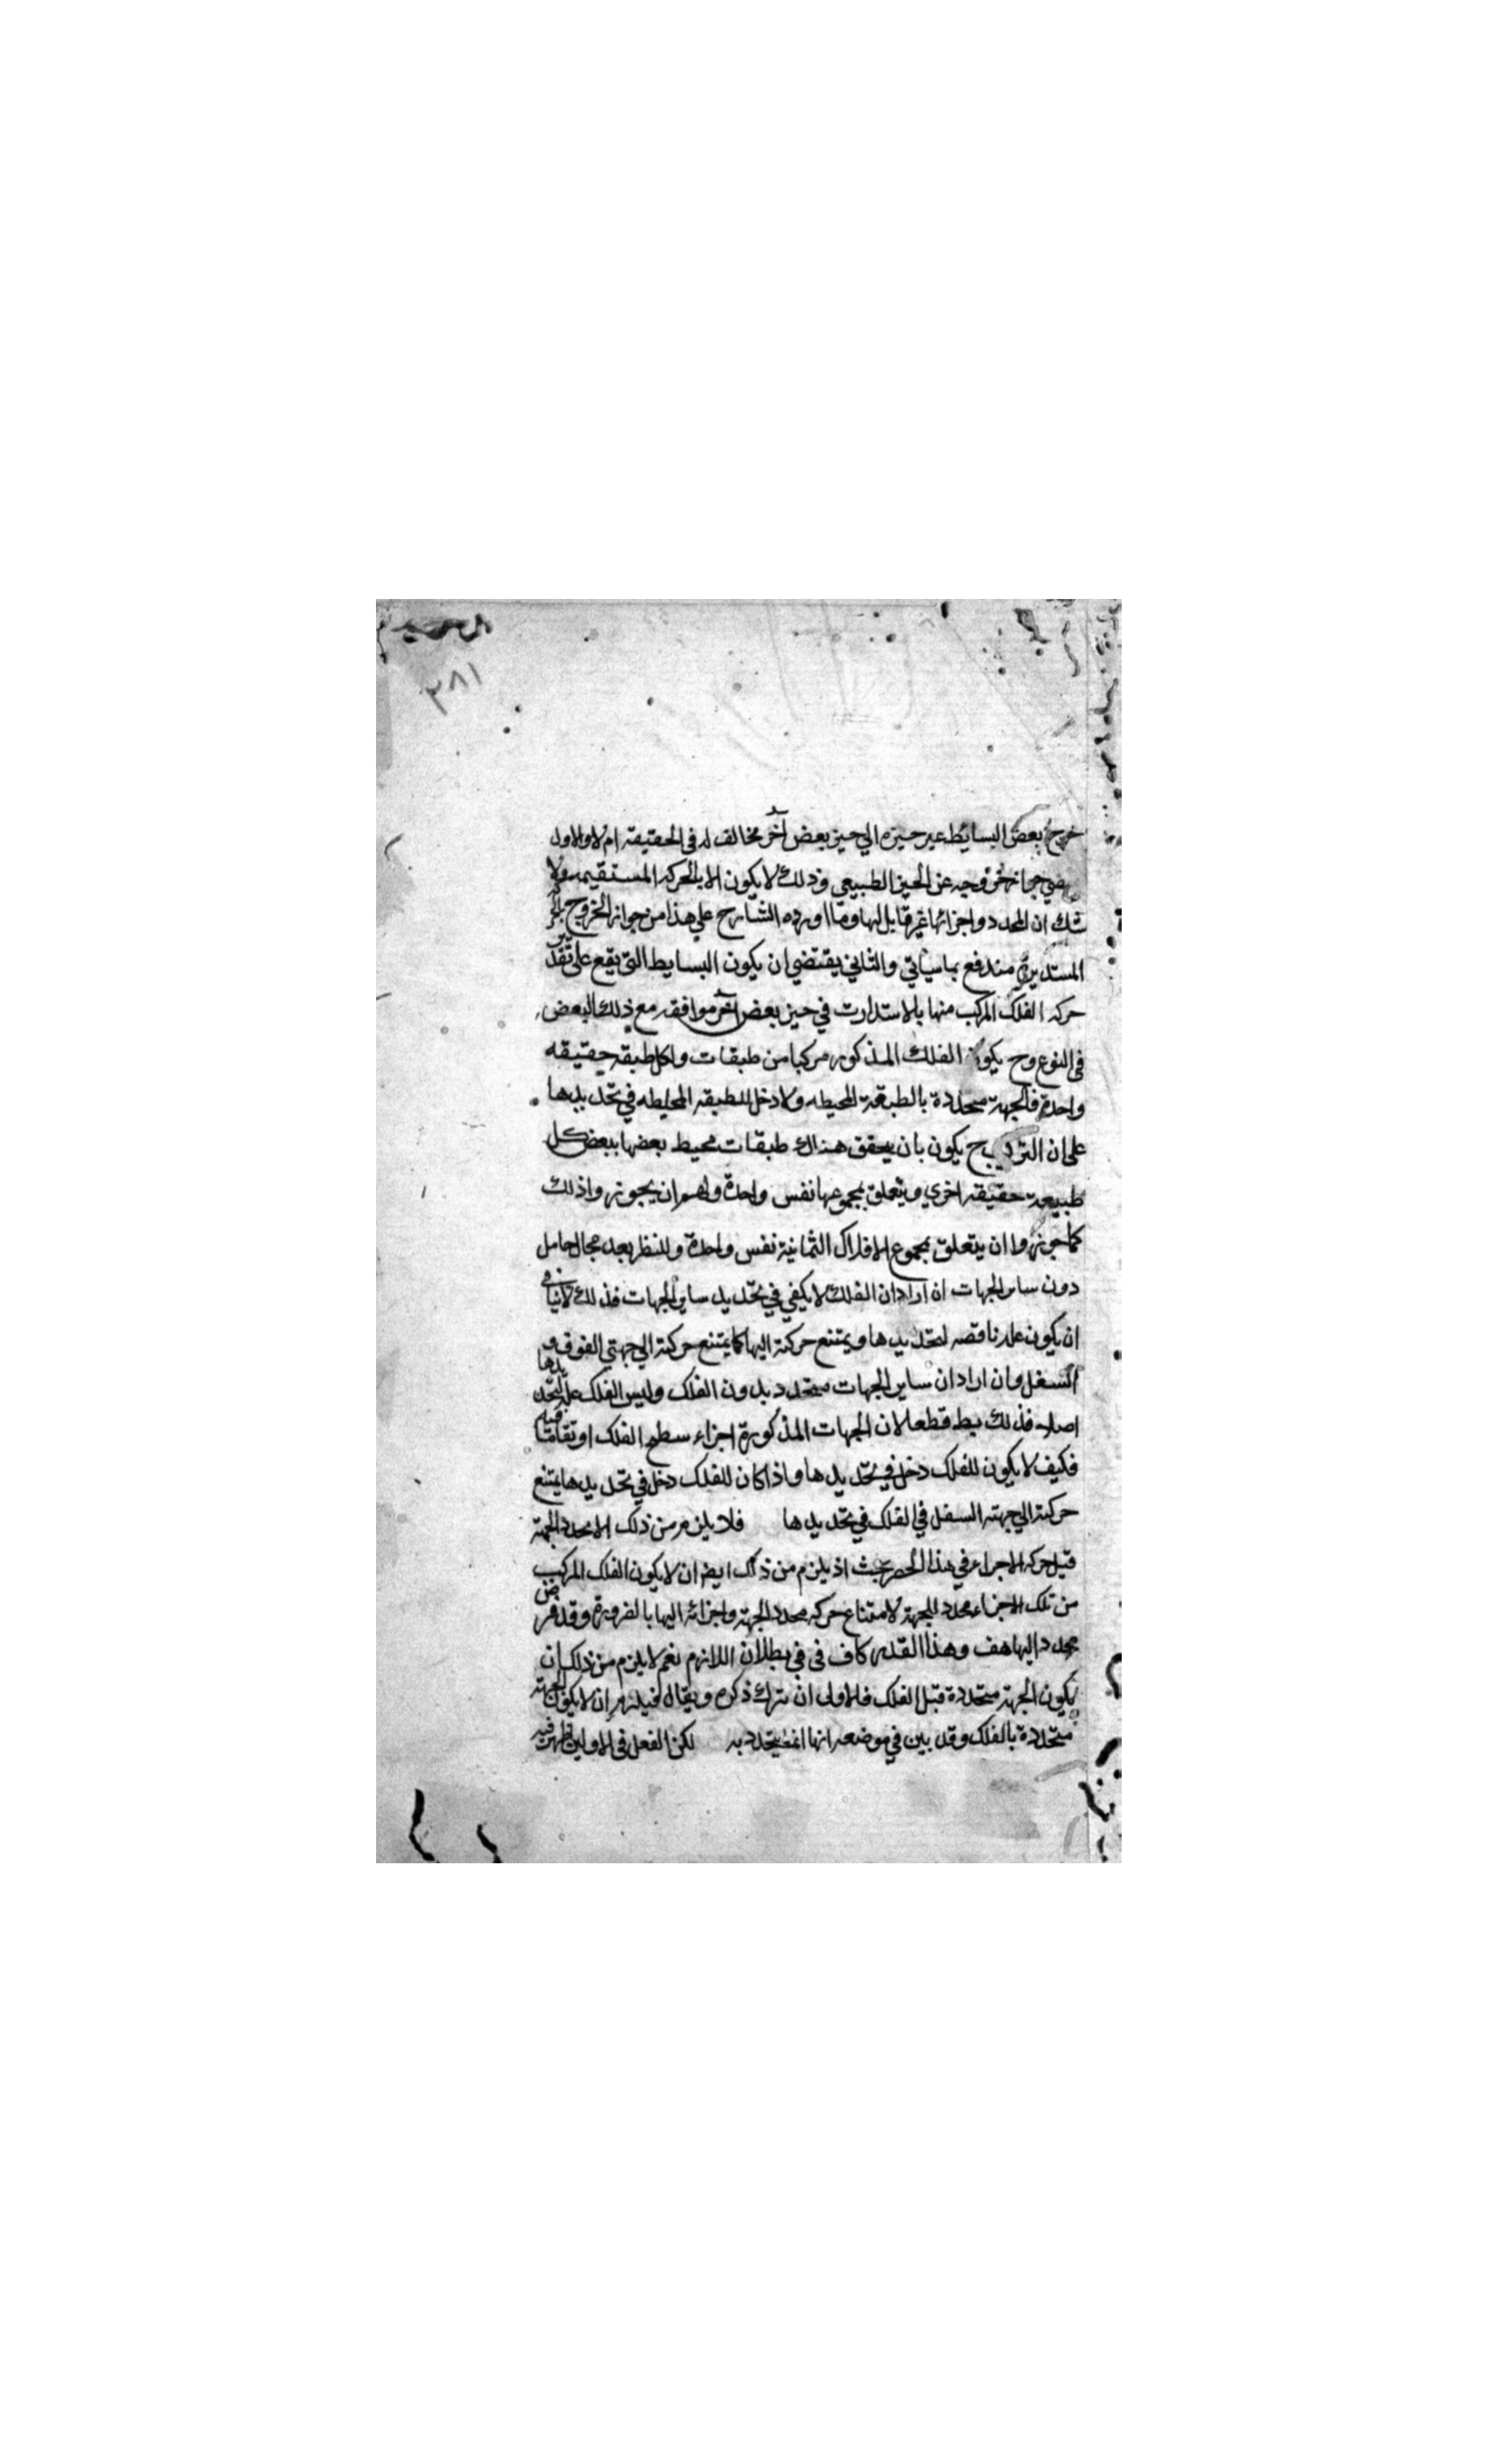 ٢٨١
خروج بعض البسايط عن حيزه الي حيز بعض آخر مخالف له في الحقيقة ام لا والاول
جواز خروجه عن الحيز الطبيعي وذلك لا يكون الا بالحركه المستقيمه ولا
شك ان المحدد واجزائها غير قابل لها وما اورده الشارح علي هذا من جواز الخروج
المستديرة مندفع بما سياتي والثاني يقتضي ان يكون البسايط التي يقع علي تقدير
حركه الفلك المركب منها بالاستدارت في حيز بعض آخر موافقه مع ذلك البعض
في النوع وح يكون الفلك المذكور مركبا من طبقات ولكل طبقه حقيقه
واحدة فالجهة متحددة بالطبقة المحيطه ولا دخل للطبقه المحاطه في تحديدها
علي ان التركيب ح يكون بان يتحقق هناك طبقات محيط بعضها ببعض كل
طبيعة حقيقه اخري ويتعلق بمجموعها نفس واحدة ولهم ان يجوزوا ذلك
كما جوزوا ان يتعلق بمجموع الافلاك الثمانية نفس واحدة وللنظر بعد مجال حامل
دون ساير الجهات ان اراد ان الفلك لا يكفي في تحديد ساير الجهات فذلك لا ينافي
ان يكون علة ناقصه لتحديدها ويمتنع حركته اليها كما يمتنع حركته الي جهتي الفوق و
السفل وان اراد ان ساير الجهات متحدد بدون الفلك وليس الفلك علة لتحديدها
اصلا فذلك بط قطعا لان الجهات المذكورة اجزاء سطح الفلك او نقاط فيه
فكيف لا يكون للفلك دخل في تحديدها واذا كان للفلك دخل في تحديدها يمتنع
حركته الي جهته السفل في الفلك في تحديدها فلا يلزم من ذلك الا تحدد الجهة
قبل حركه الاجزاء في هذا الحصر بحث اذ يلزم من ذلك ايضا ان لا يكون الفلك المركب
من تلك الاجزاء محدد للجهة لامتناع حركه محدد الجهة واجزائه اليها بالضرورة وقد فرض
محددا لها هف وهذا القدر كاف في في بطلان اللازم نعم لا يلزم من ذلك ان
يكون الجهة متحددة قبل الفلك فالاولي ان يترك ذكره ويقال فيلزم ان لا يكون الجهة
متحددة بالفلك وقد بين في موضعه انها انما يتحدد به لكن الفعل في الاولين اظهر فيه